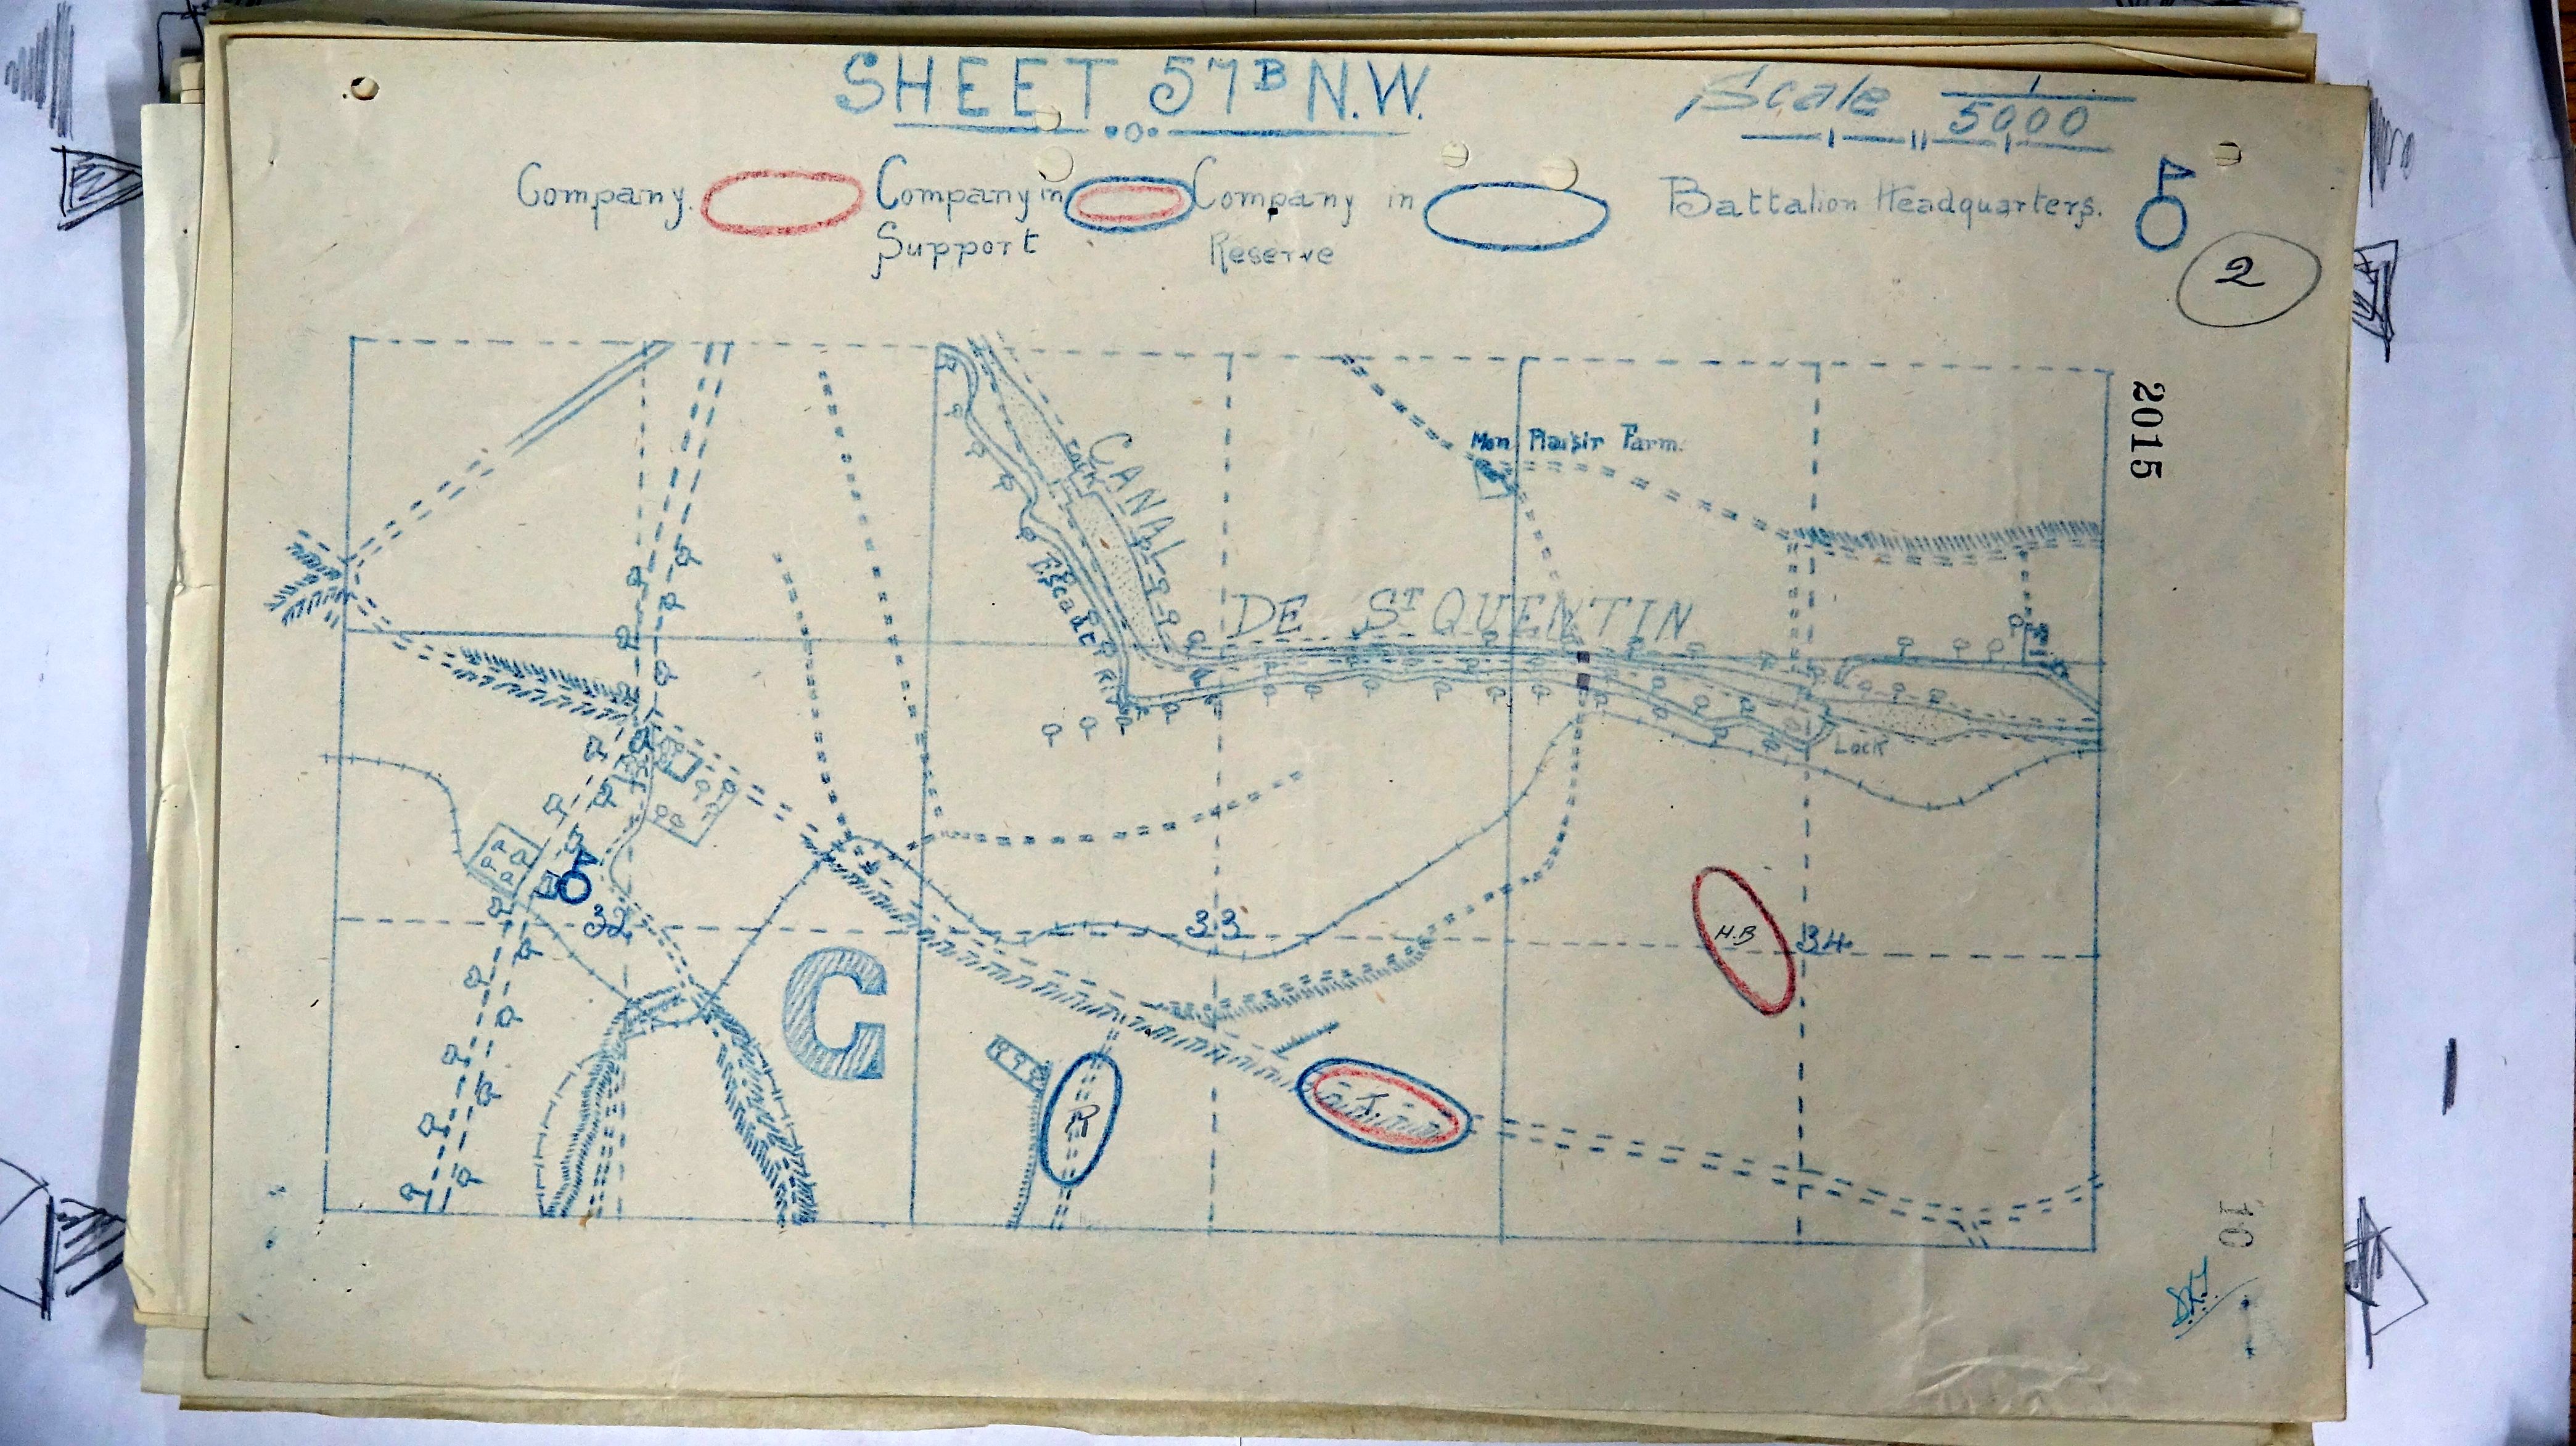 SHEET 57B N.W.
Scale 1/5000
Company. Company in Support Company in Reserve Battalion Headquarters.
2
2015
Mon Plaisir Farm.
CANAL
Lock
Escaut R.
DE ST QUENTIN
Lock
32
33
34
H.B
C
R
10